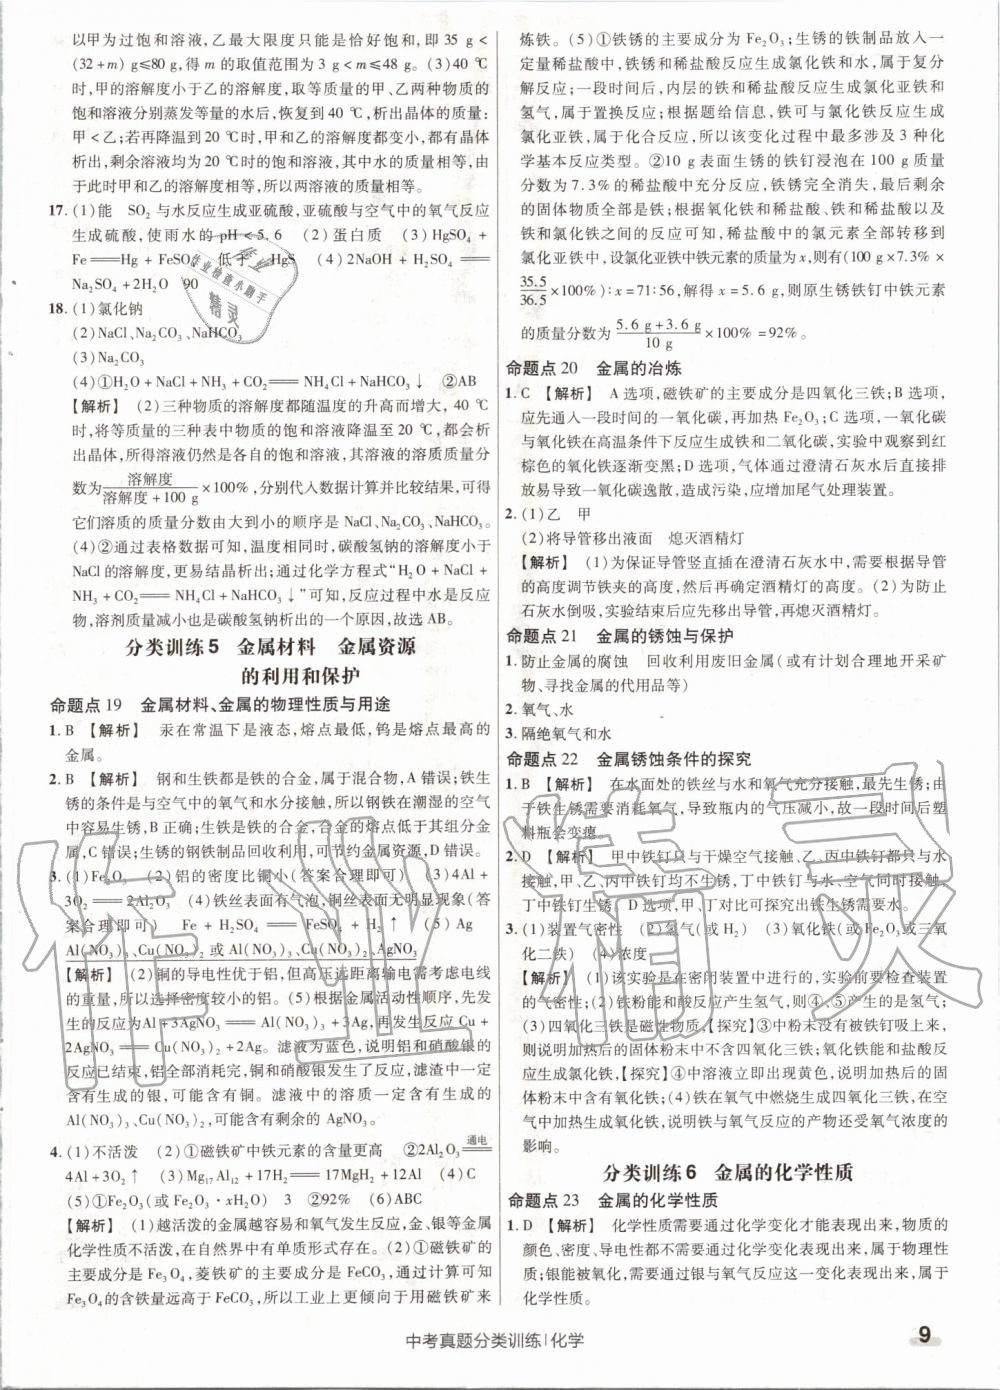 以甲为过饱和溶液,乙最大限度只能是恰好饱和,即 35 g<
(32+m) g≤80 g,得 m 的取值范围为 3 g<m≤48 g。(3)40 ℃
时,甲的溶解度小于乙的溶解度,取等质量的甲、乙两种物质的
饱和溶液分别蒸发等量的水后,恢复到 40 ℃,析出晶体的质量:
甲<乙;若再降温到 20 ℃时,甲和乙的溶解度都变小,都有晶体
析出,剩余溶液均为 20 ℃时的饱和溶液,其中水的质量相等,由
于此时甲和乙的溶解度相等,所以两溶液的质量相等。
17. (1)能 SO₂ 与水反应生成亚硫酸,亚硫酸与空气中的氧气反应
生成硫酸,使雨水的 pH<5.6 (2)蛋白质 (3)HgSO₄ +
Fe══Hg + FeSO₄ 低于 HgS (4)2NaOH + H₂SO₄══
Na₂SO₄ + 2H₂O 90
18. (1)氯化钠
(2)NaCl、Na₂CO₃、NaHCO₃
(3)Na₂CO₃
(4)①H₂O + NaCl + NH₃ + CO₂══NH₄Cl + NaHCO₃↓ ②AB
【解析】 (2)三种物质的溶解度都随温度的升高而增大, 40 ℃
时,将等质量的三种表中物质的饱和溶液降温至 20 ℃,都会析
出晶体,所得溶液仍然是各自的饱和溶液,其溶液的溶质质量分
数为溶解度/(溶解度+100 g)×100%,分别代入数据计算并比较结果,可得
它们溶质的质量分数由大到小的顺序是 NaCl、Na₂CO₃、NaHCO₃。
(4)②通过表格数据可知,温度相同时,碳酸氢钠的溶解度小于
NaCl 的溶解度,更易结晶析出;通过化学方程式“H₂O + NaCl +
NH₃ + CO₂══NH₄Cl + NaHCO₃↓”可知,反应过程中水是反应
物,溶剂质量减小也是碳酸氢钠析出的一个原因,故选 AB。
分类训练 5 金属材料 金属资源
的利用和保护
命题点 19 金属材料、金属的物理性质与用途
1. B 【解析】 汞在常温下是液态,熔点最低,钨是熔点最高的
金属。
2. B 【解析】 钢和生铁都是铁的合金,属于混合物,A 错误;铁生
锈的条件是与空气中的氧气和水分接触,所以钢铁在潮湿的空气
中容易生锈,B 正确;生铁是铁的合金,合金的熔点低于其组分金
属,C 错误;生锈的钢铁制品回收利用,可节约金属资源,D 错误。
3. (1)Fe₂O₃ (2)铝的密度比铜小(答案合理即可) (3)4Al +
3O₂══2Al₂O₃ (4)铁丝表面有气泡,铜丝表面无明显现象(答
案合理即可) Fe + H₂SO₄══FeSO₄ + H₂↑ (5)Ag
Al(NO₃)₃、Cu(NO₃)₂ 或 Al(NO₃)₃、Cu(NO₃)₂、AgNO₃
【解析】 (2)铜的导电性优于铝,但高压远距离输电需考虑电线
的重量,所以选择密度较小的铝。(5)根据金属活动性顺序,先发
生的反应为 Al+3AgNO₃══Al(NO₃)₃+3Ag,再发生反应 Cu +
2AgNO₃══Cu(NO₃)₂ +2Ag。滤液为蓝色,说明铝和硝酸银的
反应已结束,铝全部消耗完,铜和硝酸银发生了反应,滤渣中一定
有生成的银,可能含有铜。滤液中一定含有生成的
Al(NO₃)₃、Cu(NO₃)₂,可能含有剩余的 AgNO₃。
4. (1)不活泼 (2)①磁铁矿中铁元素的含量更高 ②2Al₂O₃══通电
4Al +3O₂↑ (3)Mg₁₇Al₁₂ +17H₂══17MgH₂ +12Al (4)C
(5)①Fe₂O₃ · xH₂O) 3 ②92% (6)ABC
【解析】 (1)越活泼的金属越容易和氧气发生反应,金、银等金属
化学性质不活泼,在自然界中有单质形式存在。(2)①磁铁矿的
主要成分是 Fe₃O₄,菱铁矿的主要成分是 FeCO₃,通过计算可知
Fe₃O₄的含铁量远高于 FeCO₃,所以工业上更倾向于用磁铁矿来
炼铁。(5)①铁锈的主要成分为 Fe₂O₃;生锈的铁制品放入一
定量稀盐酸中,铁锈和稀盐酸反应生成氯化铁和水,属于复分
解反应;一段时间后,内层的铁和稀盐酸反应生成氯化亚铁和
氢气,属于置换反应;根据题给信息,铁可与氯化铁反应生成
氯化亚铁,属于化合反应,所以该变化过程中最多涉及 3 种化
学基本反应类型。②10 g 表面生锈的铁钉浸泡在 100 g 质量
分数为 7.3%的稀盐酸中充分反应,铁锈完全消失,最后剩余
的固体物质全部是铁;根据氧化铁和稀盐酸、铁和稀盐酸以及
铁和氯化铁之间的反应可知,稀盐酸中的氯元素全部转移到
氯化亚铁中,设氯化亚铁中铁元素的质量为 x,则有(100 g×7.3%×
35.5/36.5×100%):x=71:56,解得 x=5.6 g,则原生锈铁钉中铁元素
的质量分数为(5.6 g+3.6 g)/10 g×100%=92%。
命题点 20 金属的冶炼
1. C 【解析】 A 选项,磁铁矿的主要成分是四氧化三铁;B 选项,
应先通入一段时间的一氧化碳,再加热 Fe₂O₃;C 选项,一氧化碳
与氧化铁在高温条件下反应生成铁和二氧化碳,实验中观察到红
棕色的氧化铁逐渐变黑;D 选项,气体通过澄清石灰水后直接排
放易导致一氧化碳逸散,造成污染,应增加尾气处理装置。
2. (1)乙 甲
(2)将导管移出液面 熄灭酒精灯
【解析】 (1)为保证导管竖直插在澄清石灰水中,需要根据导管
的高度调节铁夹的高度,然后再确定酒精灯的高度。(2)为防止
石灰水倒吸,实验结束后应先移出导管,再熄灭酒精灯。
命题点 21 金属的锈蚀与保护
1. 防止金属的腐蚀 回收利用废旧金属(或有计划合理地开采矿
物、寻找金属的代用品等)
2. 氧气、水
3. 隔绝氧气和水
命题点 22 金属锈蚀条件的探究
1. B 【解析】 在水面处的铁丝与水和氧气充分接触,最先生锈;由
于铁生锈需要消耗氧气,导致瓶内的气压减小,故一段时间后塑
料瓶会变瘪。
2. D 【解析】 甲中铁钉只与干燥空气接触,乙、丙中铁钉都只与水
接触,甲、乙、丙中铁钉均不生锈,丁中铁钉与水、空气同时接触,
丁中铁钉生锈。D 选项,甲、丁对比可探究出铁生锈需要水。
3. (1)装置气密性 (2)氢气(或 H₂) (3)氧化铁(或 Fe₂O₃或三氧
化二铁) (4)浓度
【解析】 (1)该实验是在密闭装置中进行的,实验前要检查装置
的气密性;(2)铁粉能和酸反应产生氢气,则④、⑤产生的是氢气;
(3)四氧化三铁是磁性物质,【探究】③中粉末没有被铁钉吸上来,
则说明加热后的固体粉末中不含四氧化三铁;氧化铁能和盐酸反
应生成氯化铁,【探究】④中溶液立即出现黄色,说明加热后的固
体粉末中含有氧化铁;(4)铁在氧气中燃烧生成四氧化三铁,在空
气中加热生成氧化铁,说明铁与氧气反应的产物还受氧气浓度的
影响。
分类训练 6 金属的化学性质
命题点 23 金属的化学性质
1. D 【解析】 化学性质需要通过化学变化才能表现出来,物质的
颜色、密度、导电性都不需要通过化学变化表现出来,属于物理性
质;银能被氧化,需要通过银与氧气反应这一变化表现出来,属于
化学性质。
中考真题分类训练|化学
9
作业精灵
作业
作业检查小助手
精灵